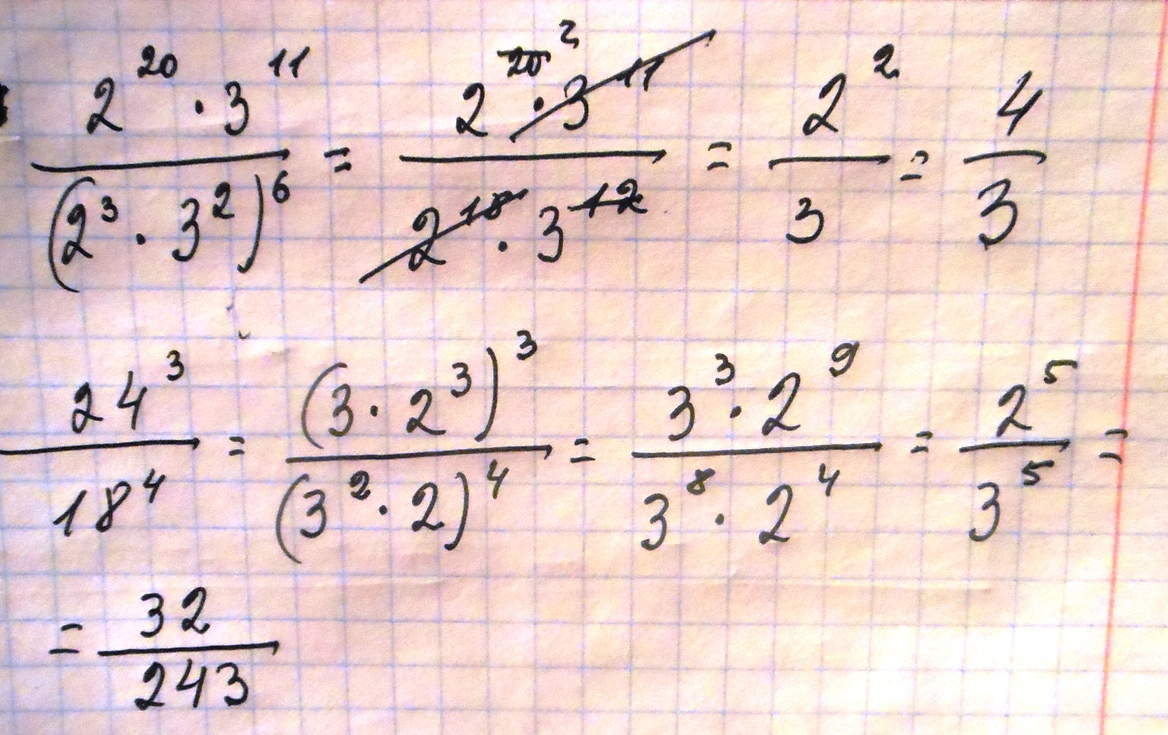 2^20 · 3^11 / (2^3 · 3^2)^6 = 2^20 ^2 · 3^11 / 2^18 · 3^12 = 2^2 / 3 = 4 / 3
24^3 / 18^4 = (3 · 2^3)^3 / (3^2 · 2)^4 = 3^3 · 2^9 / 3^8 · 2^4 = 2^5 / 3^5 =
= 32 / 243